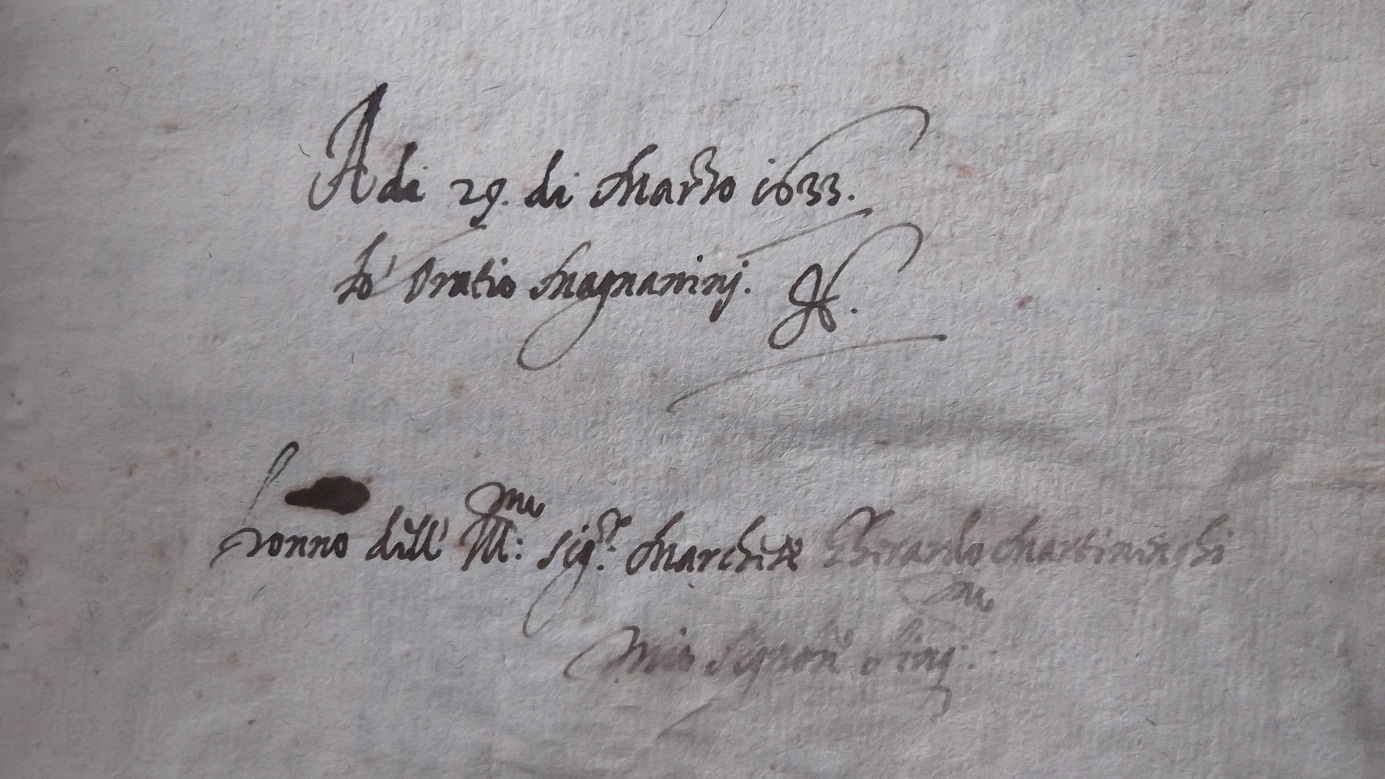 A di 29. di Marzo 1633.
Io Oratio Magnanini.
Donno dell' Ill.mo Sig.r Marchese Gherardo Martinenghi
mio Signor Sing.mo